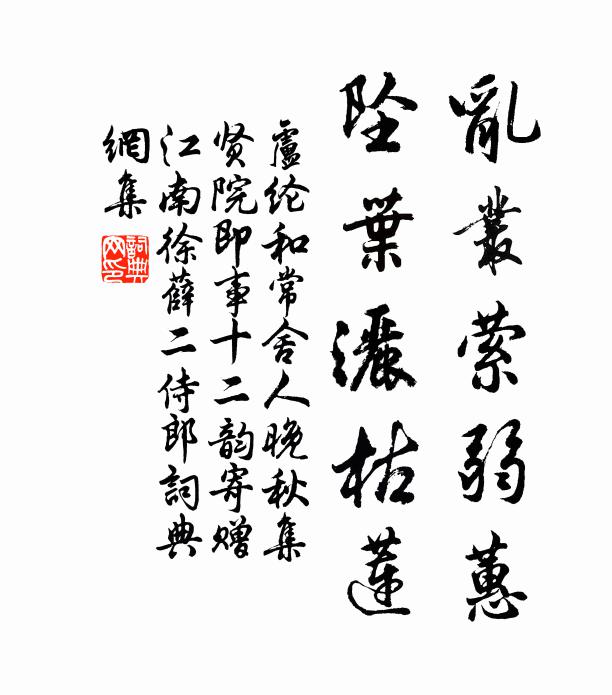 亂叢縈弱蕙
坠葉灑枯蓮
盧纶和常舍人晚秋集
贤院即事十二韵寄赠
江南徐薛二侍郎詞典
網集
詞典网印